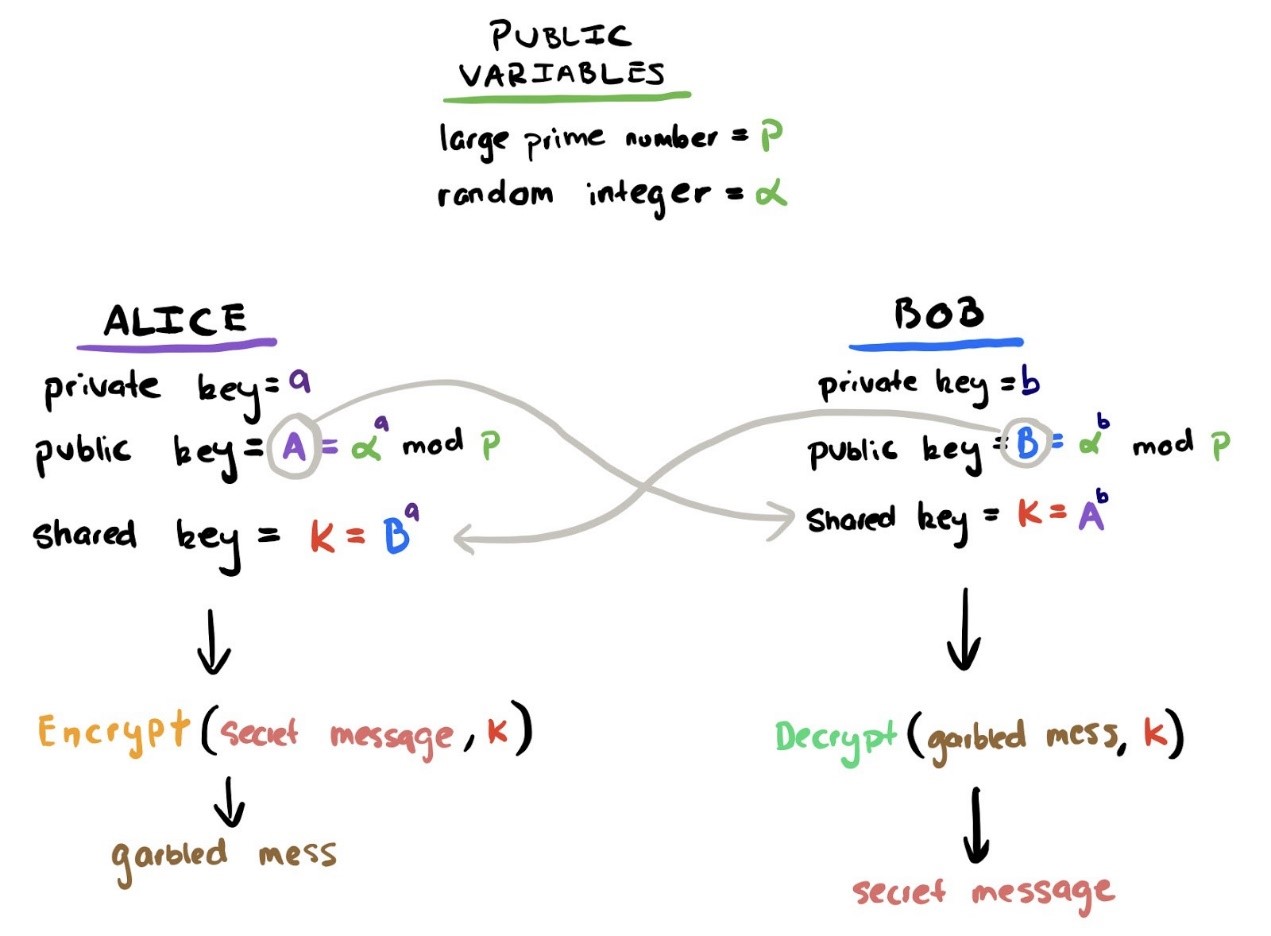 PUBLIC
VARIABLES
large prime number = p
random integer = α
ALICE
private key = a
public key = A = α^a mod p
shared key = K = B^a
Encrypt (secret message, K)
garbled mess
BOB
private key = b
public key = B = α^b mod p
Shared key = K = A^b
Decrypt (garbled mess, K)
secret message